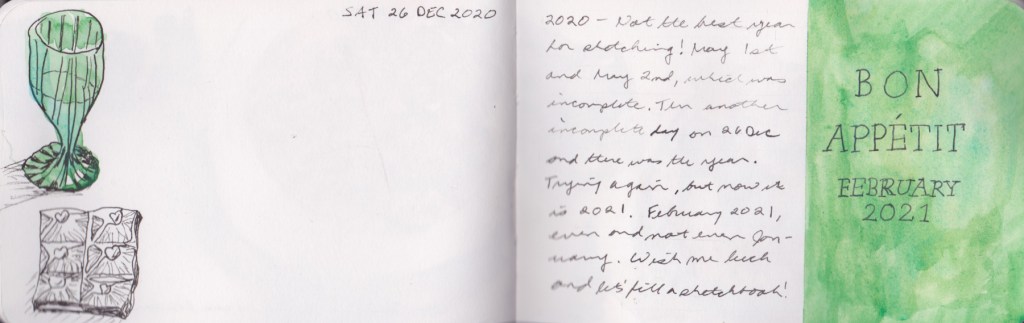 SAT 26 DEC 2020
2020 – Not the best year
for sketching! May 1st
and May 2nd, which was
incomplete. Then another
incomplete day on 26 Dec
and there was the year.
Trying again, but now it
is 2021. February 2021,
even and not even Jan-
uary. Wish me luck
and let's fill a sketchbook!
BON
APPÉTIT
FEBRUARY
2021